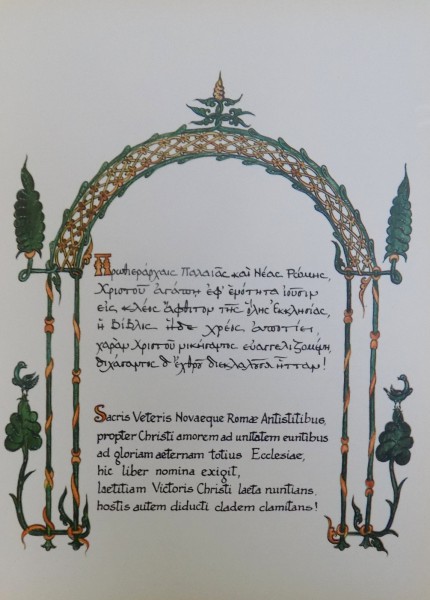 Πρωθιεράρχαις Παλαιᾶς καὶ Νέας Ῥώμης,
Χριστοῦ ἀγάπῃ ἐφ' ἑνότητα ἰοῦσιν
εἰς κλέος ἄφθιτον τῆς ὅλης Ἐκκλησίας,
ἡ Βίβλος ἥδε χρέος ἀποτίει,
χαρὰν Χριστοῦ νικήσαντος εὐαγγελιζομένη,
διχάσαντος δ' ἐχθροῦ διεκλαλοῦσα ἧτταν!
Sacris Veteris Novaeque Romæ Antistitibus,
propter Christi amorem ad unitatem euntibus
ad gloriam aeternam totius Ecclesiae,
hic liber nomina exigit,
laetitiam Victoris Christi laeta nuntians,
hostis autem diducti cladem clamitans!